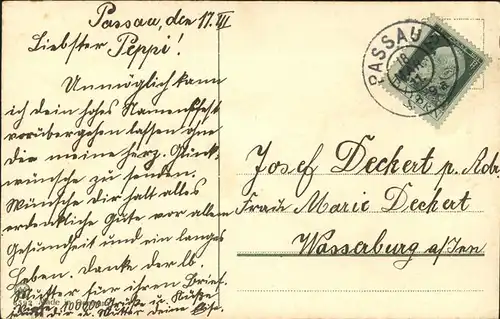 Passau, den 17. III
Liebster Peppi!
Unmöglich kann
ich dein hohes Namensfest
vorübergehen lassen ohne
dir meine herz. Glück-
wünsche zu senden.
Wünsche dir halt alles
erdenkliche Gute vor allem
Gesundheit und ein langes
Leben. Danke der lb.
Mutter für ihren Brief.
100000 Grüße u. Küße
dir u. Mutter deine
PASSAU 2
Josef Deckert p. Adr.
Frau Marie Deckert
Wasserburg a/Inn